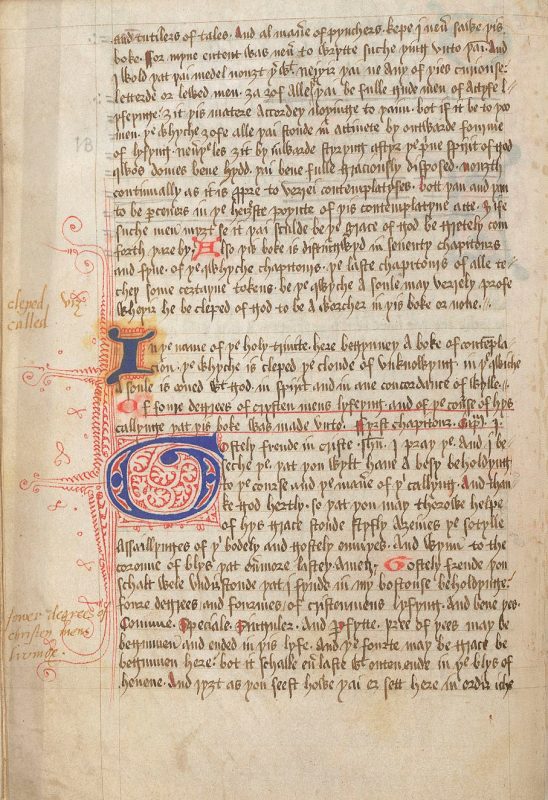 and tutilers of tales. And al man̄e of pynchers. kepe j neu̅ sawe þis
boke. For myne entent was neu̅ to wrytte suche þing vnto þai. And
j wold þat þai medel nouzt þ wt. Neyþ þai ne any of þies curiouse:
letterde or lewed men. za zof alle þai be fulle gude men of actyfe
lyfeynge. zit þis matere accordeþ noþinge to þaim. bot if it be to þoo
men. þe whyche zofe alle þai stonde in actiuete by outwarde fourme
of lyfyng. neuþeles zit by inwarde styryng aftyr þe pue spirit of god
domes bene hydd. þai bene fulle graciously disposed. nouzth
continually as it is ppre to verrei contemplatyfes. bott þan and þan
to be pceners in þe heizste poynte of þis contemplatyue acte. zife
suche men myzt se it þai schulde be þe grace of god be gretely com
forth þare by. Also þis boke is distingwyd in seuenty chapitours
and fyue. of þe qwhyche chapitours. þe laste chapitours of alle te
chey some certayne tokens. be þe qwyche a soule may verrely profe
wheþ he be cleped of god to be a worcher in þis boke or none.
cleped
called
In þe name of þe holy trinite. here begynneþ a boke of contempla
cion. þe whyche is cleped þe cloude of vnknowyng. in þe qwiche
a soule is oned wt god. in spirit and in ane concordance of wylle.
Of foure degrees of crysten mens lyfeyng. and of þe course of hys
callynge þat þis boke was made vnto. Fyrst chapitour. Capm. j.
Gostely frende in criste Jhu. I pray þe. and j be
seche þe. þat þou wylt haue a besy beholdyng
to þe course and þe man̄e of þ callyng. And than
ke god hertly. so þat þou may thorowe helpe
of hys grace stonde styfly azeines þe sotylle
Assaillynges of þ bodely and gostely enmyes. And wynn to the
coroune of blys þat eumore lastey. Amen. Gostely frende þou
schalt wele vndirstonde þat j fynde in my bostouse beholdynge.
foure degrees and fourmes of cristenmens lyfyng. and bene þes.
Commune. Speciale. Singuler. And Pfytte. þree of þees may be
begunnen and ended in þis lyfe. And þe fourte may be grace be
begunnen here. bot it schalle eu̅ laste wtouten ende in þe blys of
heuene. And ryzt as þou seest howe þai er sett here in ordir iche
fower degrees of
christen mens
livinge.